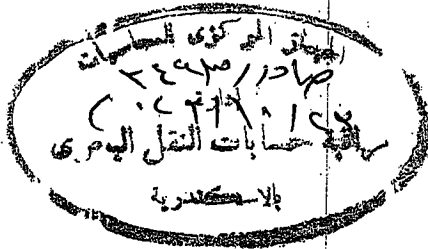 الجهاز المركزى للمحاسبات
صادر / ٢٤٩٣
مراقبة حسابات النقل البحرى
بالاسكندرية